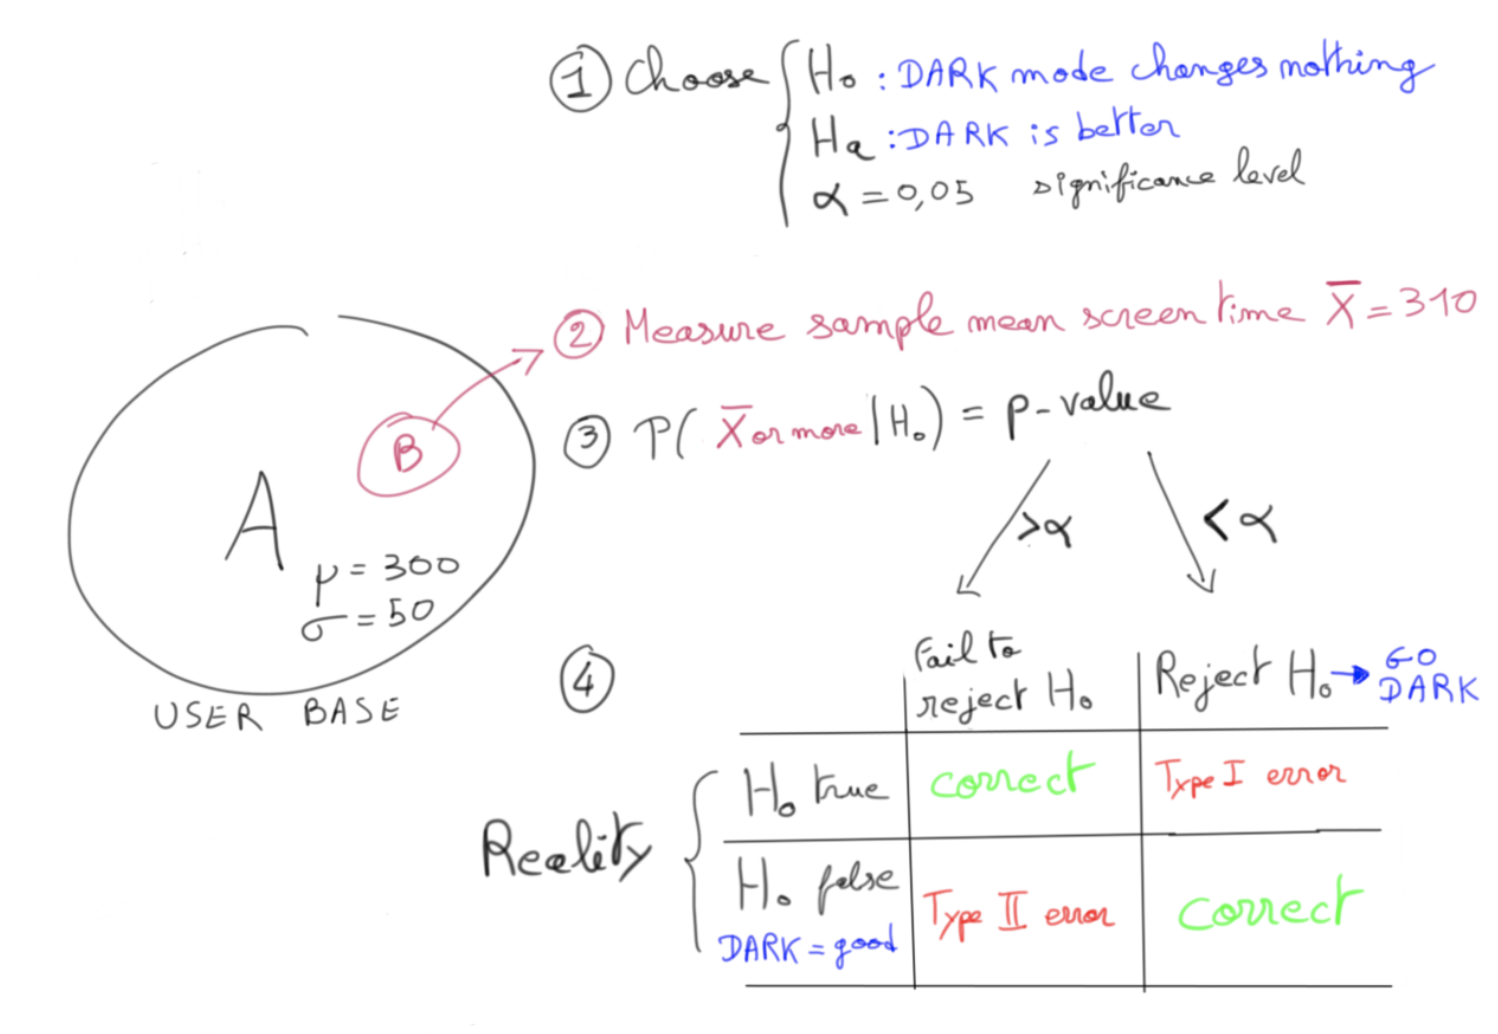 ① Choose { H₀ : DARK mode changes nothing
Ha : DARK is better
α = 0,05 significance level
② Measure sample mean screen time X̄ = 310
③ P( X̄ or more | H₀ ) = p-value
B
A
μ = 300
σ = 50
USER BASE
> α
< α
④
Fail to
reject H₀
Reject H₀ → GO
DARK
Reality { H₀ true
correct
Type I error
H₀ false
DARK = good
Type II error
correct